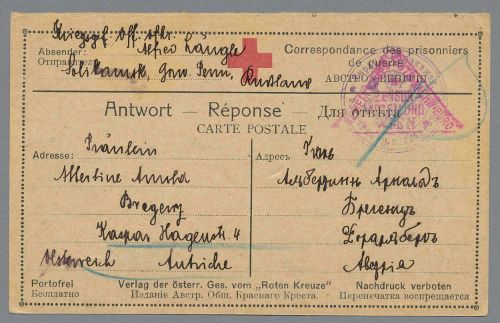 Kriegsgf. Off. Asp.
Absender: Alfred Längle
Отправитель:
Solikamsk, Gouv. Perm, Russland
Correspondance des prisonniers
de guerre
АВСТРО-ВЕНГРІЯ
Antwort — Réponse — Для отвѣта
CARTE POSTALE
Adresse: Fräulein
Albertine Arnold
Bregenz
Kaspar Hagenstr. 4
Österreich Autriche
Адресъ
Альбертинѣ Арнольдъ
Брегенцъ
Форарлбергъ
Австрія
Portofrei
Безплатно
Verlag der österr. Ges. vom „Roten Kreuze"
Изданіе Австр. Общ. Краснаго Креста.
Nachdruck verboten
Перепечатка воспрещается